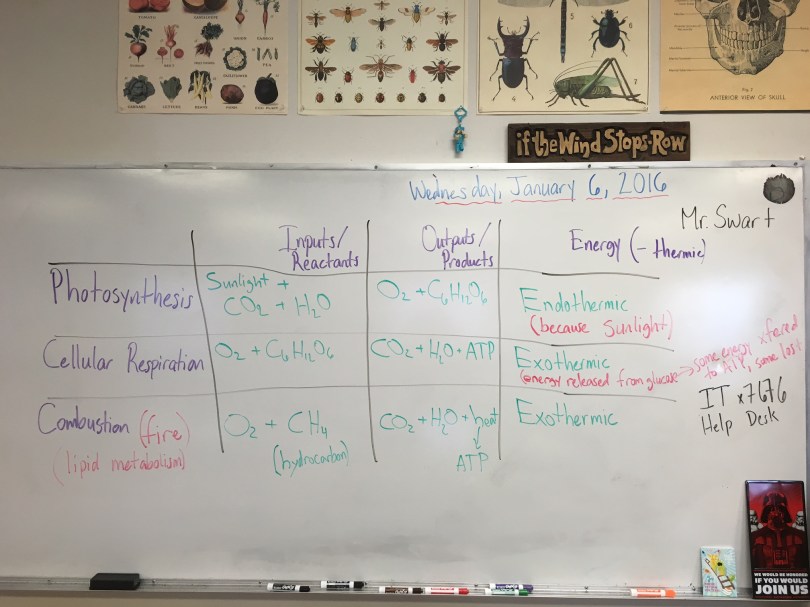 ANTERIOR VIEW OF SKULL
if the Wind Stops-Row
Wednesday, January 6, 2016
Mr. Swart
Inputs/
Reactants
Outputs/
Products
Energy (- thermic)
Photosynthesis
Sunlight +
CO2 + H2O
O2 + C6H12O6
Endothermic
(because Sunlight)
Cellular Respiration
O2 + C6H12O6
CO2 + H2O + ATP
Exothermic
(energy released from glucose → some energy xfered
to ATP, some lost
Combustion (fire)
(lipid metabolism)
O2 + CH4
(hydrocarbon)
CO2 + H2O + heat
↓
ATP
Exothermic
IT x7676
Help Desk
WE WOULD BE HONORED
IF YOU WOULD
JOIN US